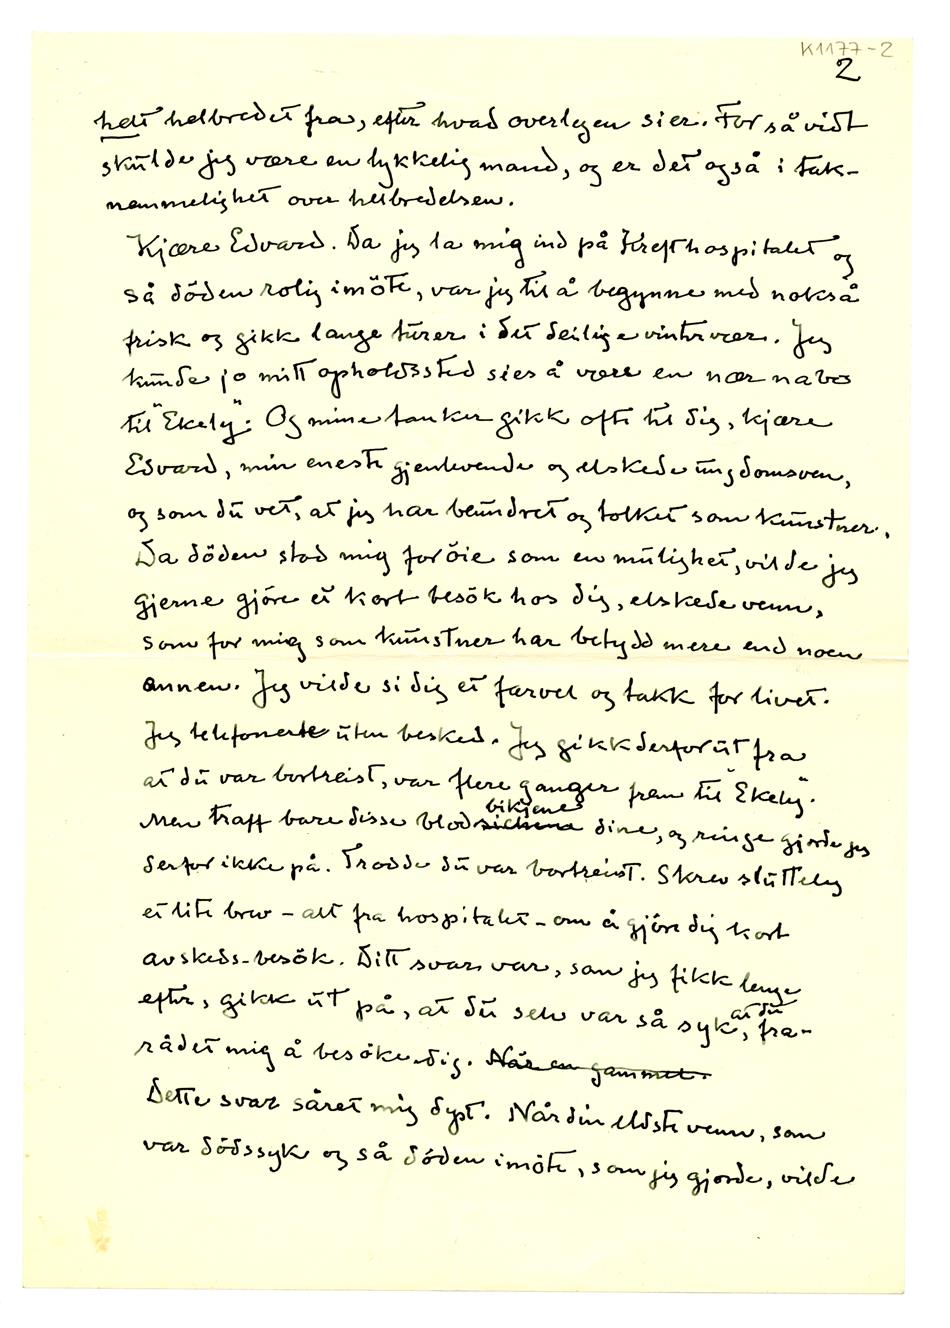 K1177-2
2
helt helbredet fra, efter hvad overlegen sier. For så vidt
skulde jeg være en lykkelig mand, og er det også i tak-
nemmelighet over helbredelsen.
Kjære Edvard. Da jeg la mig ind på Krefthospitalet og
så döden rolig imöte, var jeg til å begynne med nokså
frisk og gikk lange turer i det deilige vintervær. Jeg
kunde jo mitt opholdssted sies å være en nær nabo
til "Ekely". Og mine tanker gikk ofte til dig, kjære
Edvard, min eneste gjenlevende og elskede ungdomsven,
og som du vet, at jeg har beundret og tolket som kunstner.
Da döden stod mig for öie som en mulighet, vilde jeg
gjerne gjöre et kort besök hos dig, elskede venn,
som for mig som kunstner har betydd mere end noen
annen. Jeg vilde si dig et farvel og takk for livet.
Jeg telefonerte uten besked. Jeg gikk derfor ut fra
at du var bortreist, var flere ganger frem til "Ekely".
Men traff bare disse blod bikjene dine, og ringe gjorde jeg
derfor ikke på. Trodde du var bortreist. Skrev sluttelig
et lite brev - alt fra hospitalet - om å gjöre dig kort
avskeds-besök. Ditt svar var, som jeg fikk lenge
efter, gikk ut på, at du selv var så syk, at du fra-
rådet mig å besöke dig. När en gammel.
Dette svar såret mig dypt. Når din eldste venn, som
var dödssyk og så döden imöte, som jeg gjorde, vilde